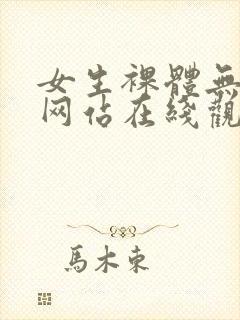 女生裸體無
网佔在綫觀
馬木東